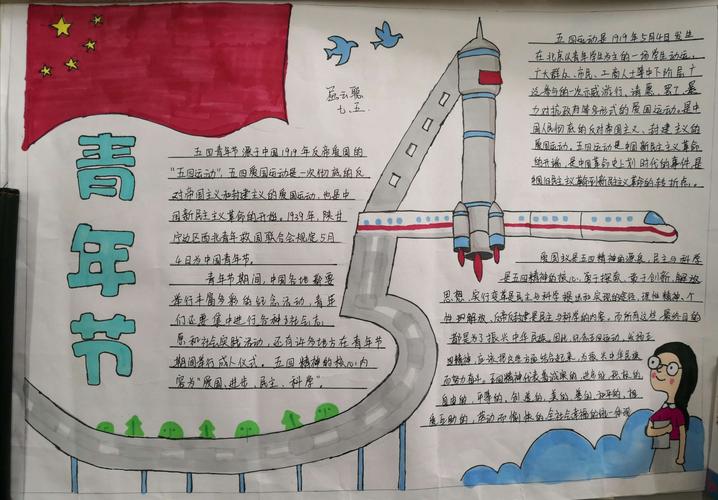 青年节
五四青年节源于中国1919年反帝爱国的
"五四运动",五四爱国运动是一次彻底的反
对帝国主义和封建主义的爱国运动,也是中
国新民主主义革命的开始。1939年,陕甘
宁边区西北青年救国联合会规定5月
4日为中国青年节。
青年节期间,中国各地都要
举行丰富多彩的纪念活动,青年
们还要集中进行各种社会志
愿和社会实践活动,还有许多地方在青年节
期间举行成人仪式。五四精神的核心内
容为"爱国、进步、民主、科学"。
七、五
五四运动是1919年5月4日发生
在北京以青年学生为主的一场学生运动,
广大群众、市民、工商人士等中下阶层广
泛参与的一次示威游行、请愿、罢工、暴
力对抗政府等多形式的爱国运动。是中
国人民彻底的反对帝国主义、封建主义的
爱国运动。五四运动是中国新民主主义革命
的开端,是中国革命史上划时代的事件,是
中国旧民主主义革命到新民主主义革命的转折点。
爱国主义是五四精神的源泉,民主与科学
是五四精神的核心,勇于探索、敢于创新、解放
思想、实行变革是民主与科学提出和实现的途径,理性精神、个
性解放、反帝反封建是民主与科学的内容,而所有这些,最终目的
都是为了振兴中华民族。因此,纪念五四运动,
四精神,应该将这些方面结合起来,为振兴中华民族
而努力奋斗。五四精神代表着诚实的、进步的、积极的、
自由的、平等的、创造的、美的、善的、和平的、相
爱互助的、劳动而愉快的、全社会幸福的